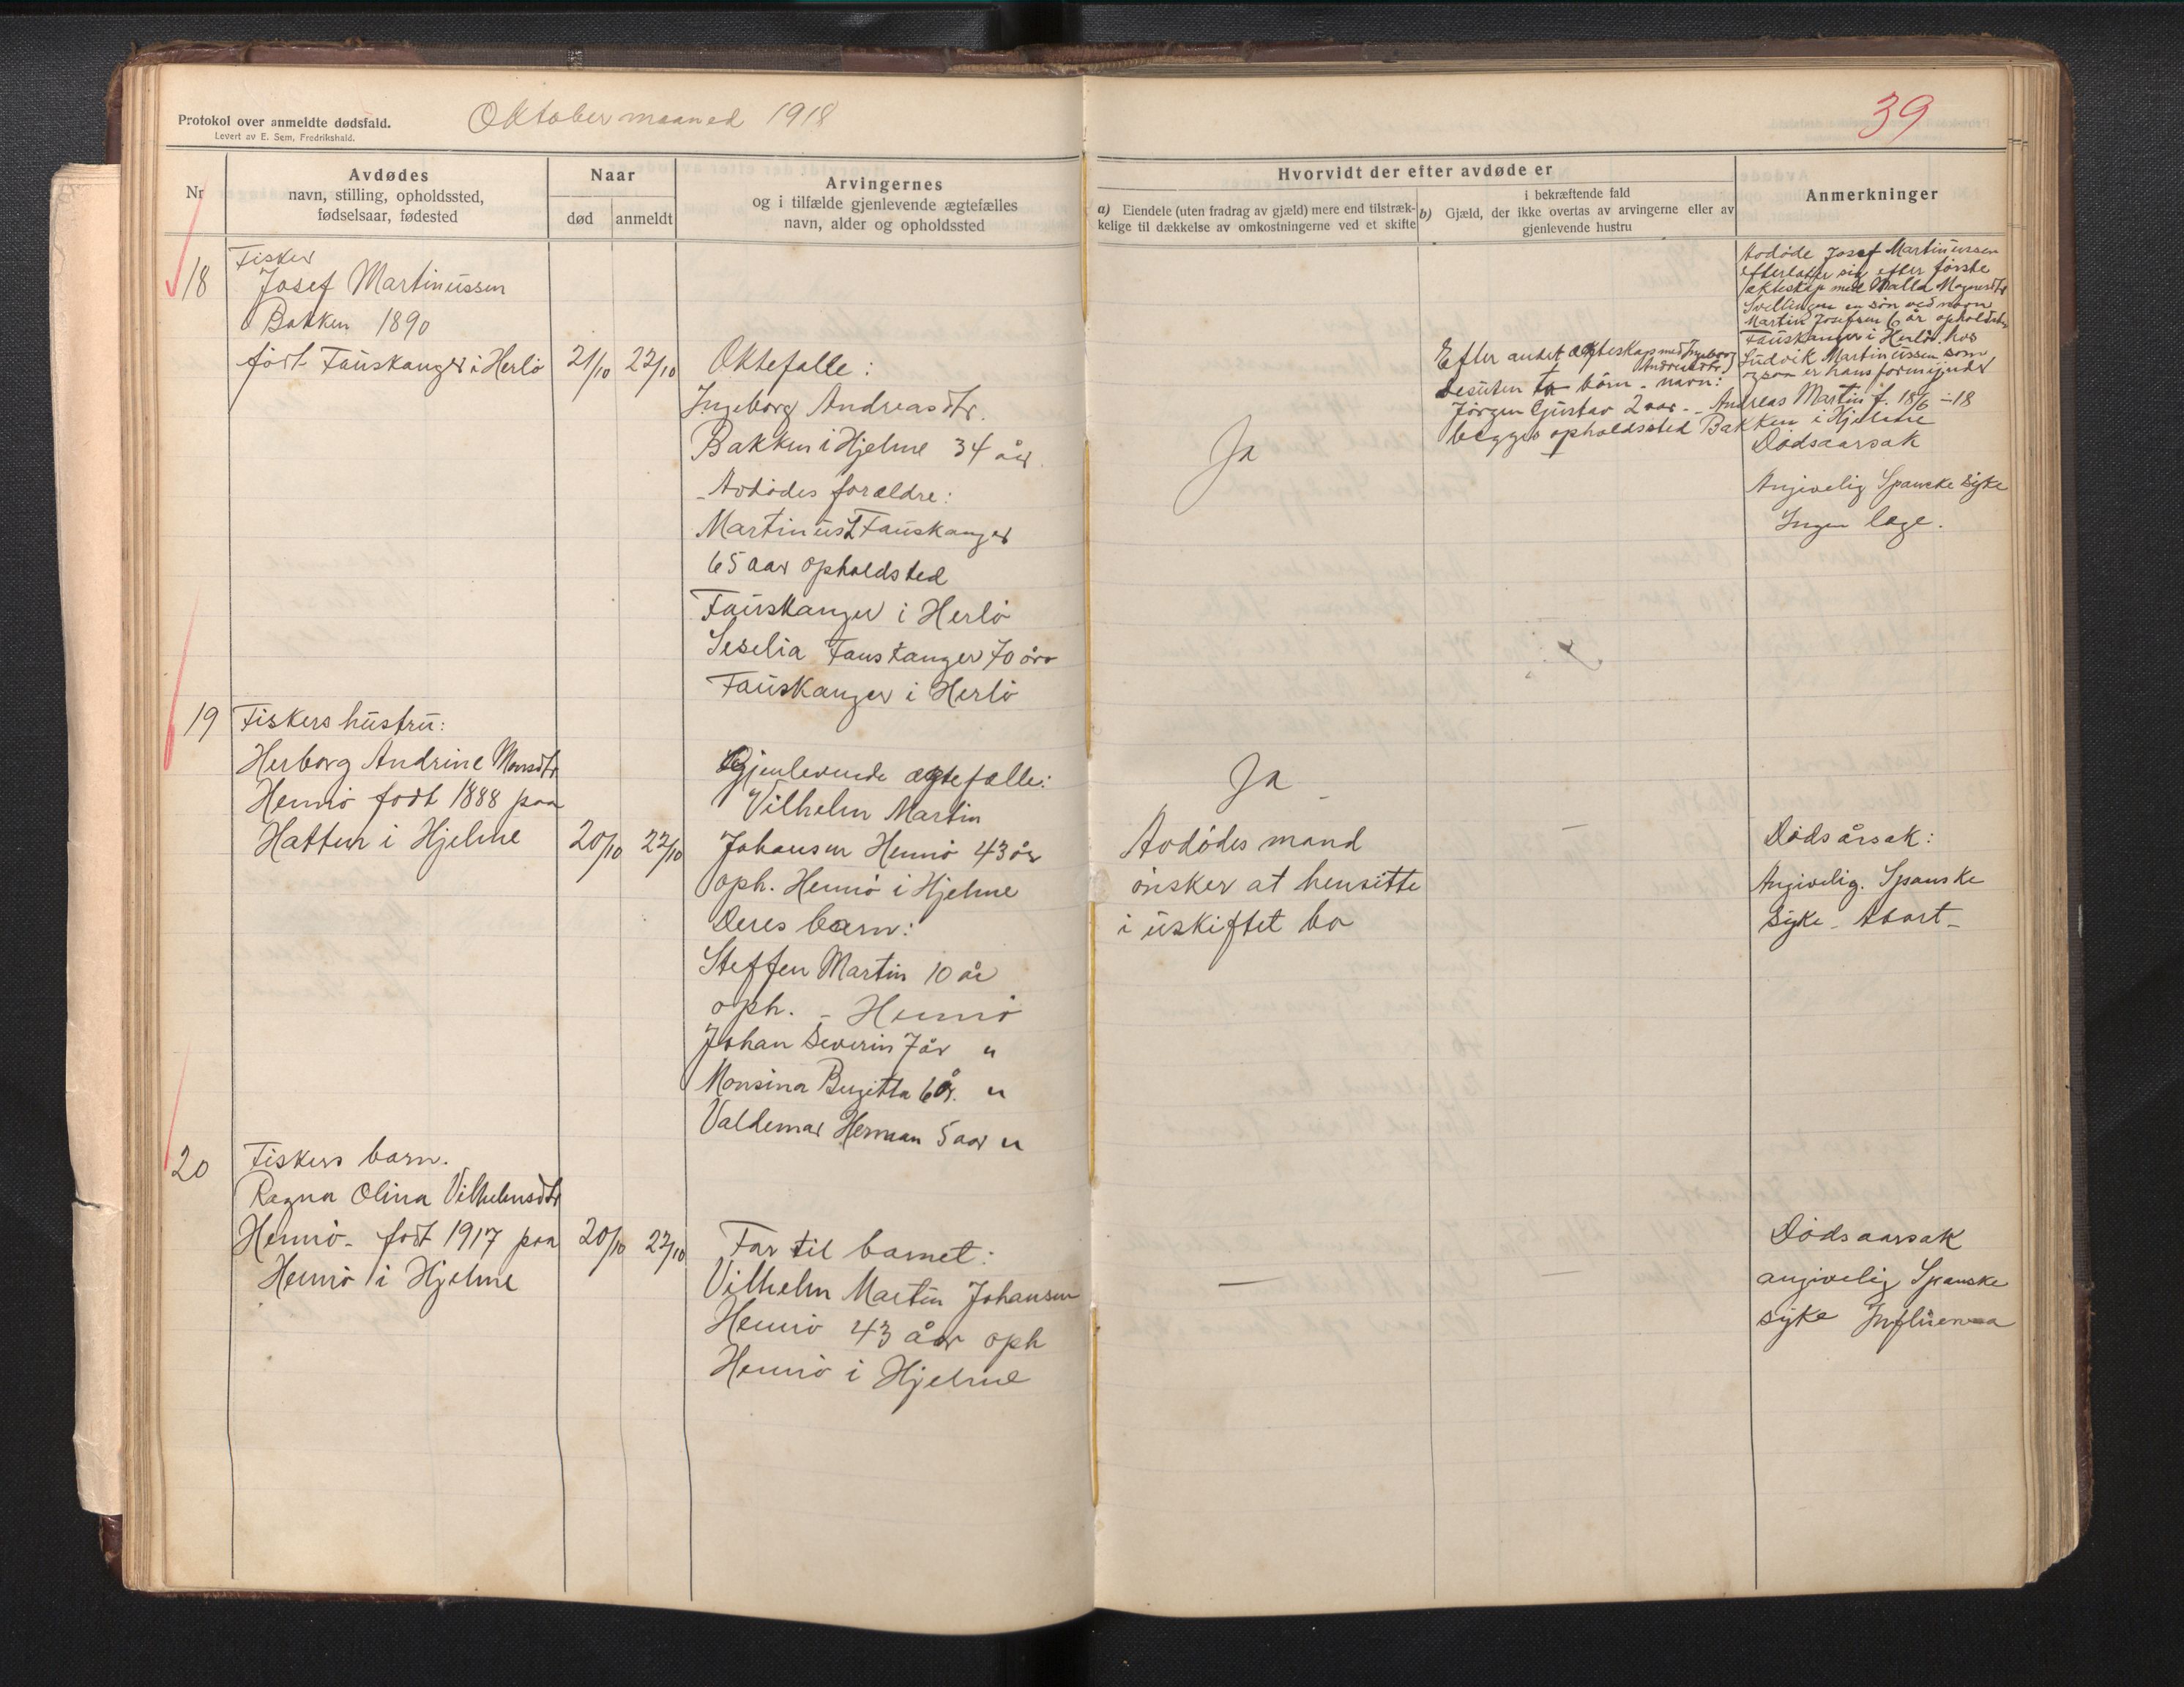 Protokol over anmeldte dødsfald.
Levert av E. Sem, Fredrikshald.
Oktober maaned 1918
39
Nr
Avdødes
navn, stilling, opholdssted,
fødselsaar, fødested
Naar
død
anmeldt
Arvingernes
og i tilfælde gjenlevende ægtefælles
navn, alder og opholdssted
Hvorvidt der efter avdøde er
a) Eiendele (uten fradrag av gjæld) mere end tilstræk-
kelige til dækkelse av omkostningerne ved et skifte
i bekræftende fald
b) Gjæld, der ikke overtas av arvingerne eller av
gjenlevende hustru
Anmerkninger
18
Fisker
Josef Martinussen
Bakken 1890
født Fauskanger i Herlø
21/10
22/10
Ektefælle:
Ingeborg Andreasdtr.
Bakken i Hjelme 34 år.
Avdødes forældre:
Martinus L Fauskanger
65 aar opholdsted
Fauskanger i Herlø
Seselia Fauskanger 70 år
Fauskanger i Herlø
Ja
Efter andet ægteskap med Ingeborg
Andreasdtr.)
desuten to børn - navn:
Jörgen Gustav 2 aar - Andreas Martin f. 18/6 - 18
begges opholdssted Bakken i Hjelme
Avdøde Josef Martinussen
efterlater sig efter første
ækteskap med Malla Mognesdtr
Svellingen en søn ved navn
Martin Josefsen 6 år opholdstr
Fauskanger i Herlø. hos
Ludvik Martinussen som
ogsaa er hans formynder
Dødsaarsak
Angivelig Spanske syke
Ingen læge.
19
Fiskers hustru:
Herborg Andrine Monsdtr
Hennø født 1888 paa
Hatten i Hjelme
20/10
22/10
Gjenlevende ægtefælle:
Vilhelm Martin
Johansen Hennø 43 år
oph. Hennø i Hjelme
Deres barn:
Steffen Martin 10 år
oph. - Hennø
Johan Severin 7 år "
Monsina Birgitta 6 år. "
Valdemar Herman 5 aar "
Ja -
Avdødes mand
ønsker at hensitte
i uskiftet bo
—
Dødsårsak:
Angivelig. Spanske
Syke - Abort -
20
Fiskers barn.
Ragna Olina Vilhelmsdtr
Hennø - født 1917 paa
Hennø i Hjelme
20/10
22/10
Far til barnet:
Vilhelm Martin Johansen
Hennø 43 åar oph
Hennø i Hjelme
—
—
Dødsaarsak
angivelig Spanske
syke Influensa